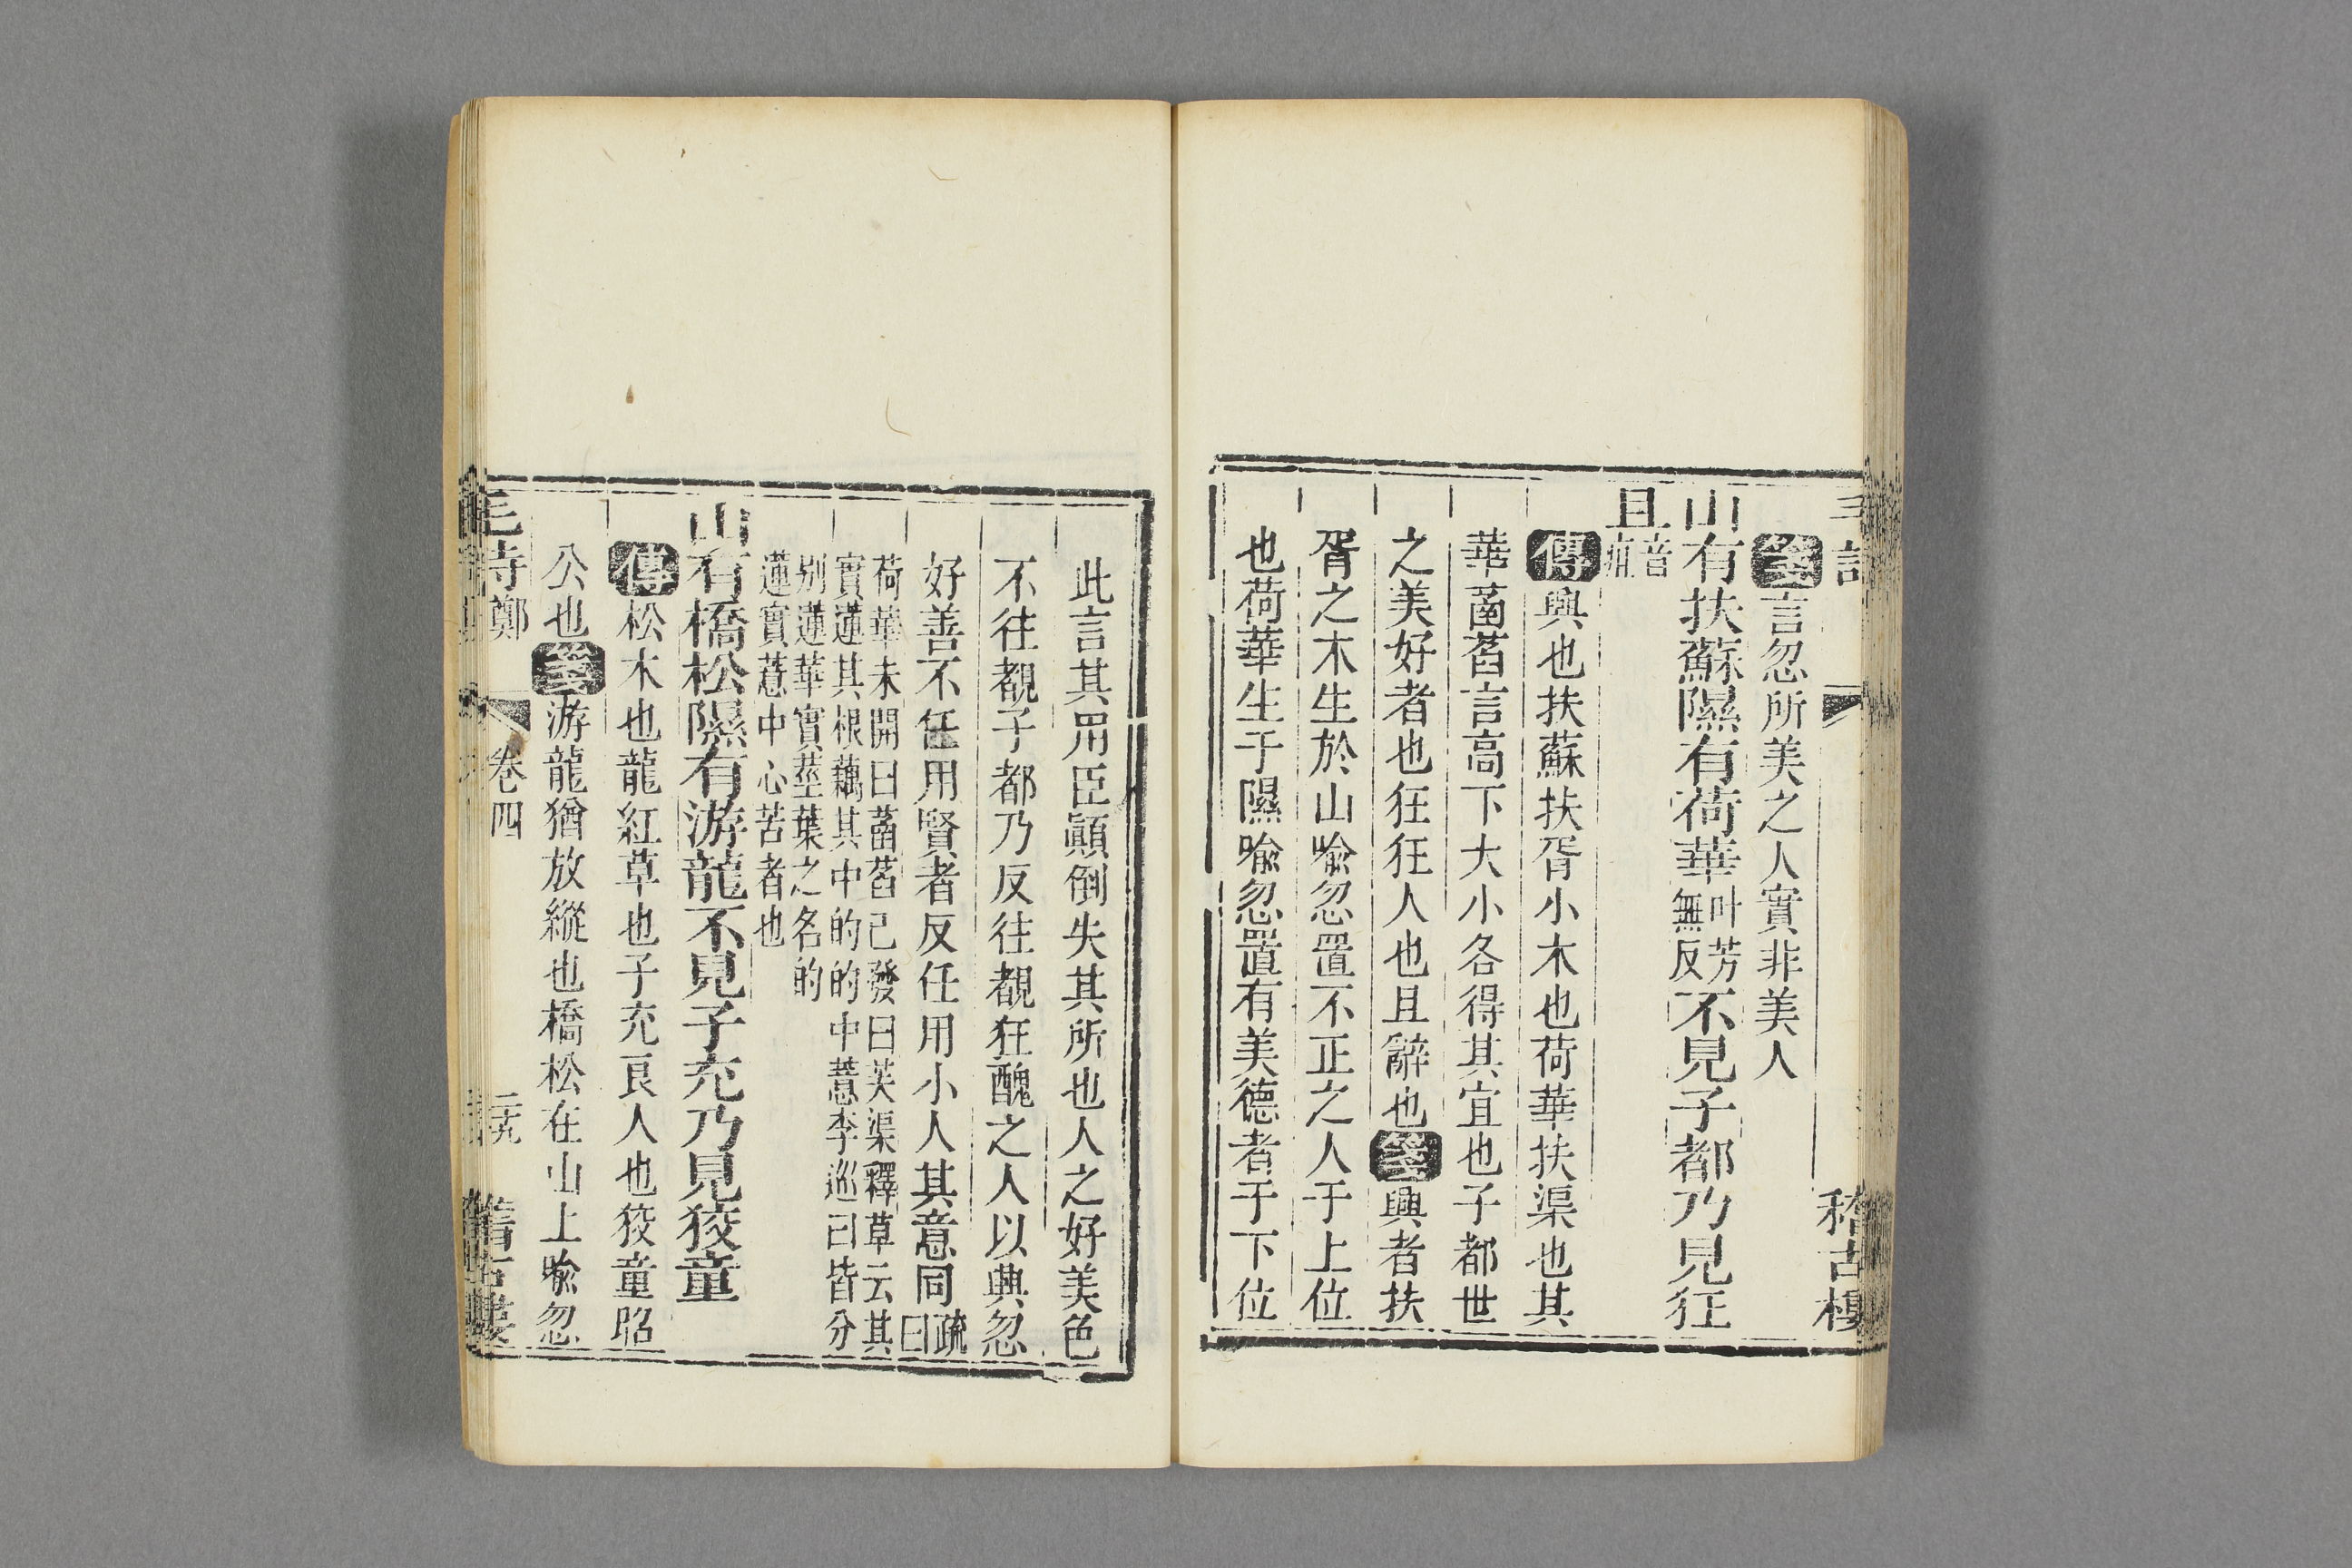 毛詩
稽古樓
箋言忽所美之人實非美人
山有扶蘇隰有荷華叶芳無反不見子都乃見狂
且音疽
傳興也扶蘇扶胥小木也荷華扶渠也其
華菡萏言高下大小各得其宜也子都世
之美好者也狂狂人也且辭也箋興者扶
胥之木生於山喩忽置不正之人于上位
也荷華生于隰喩忽置有美德者于下位
此言其用臣顚倒失其所也人之好美色
不往覩子都乃反往覩狂醜之人以興忽
好善不任用賢者反任用小人其意同疏曰
荷華未開曰菡萏已發曰芙渠釋草云其
實蓮其根藕其中的的中薏李巡曰皆分
别蓮華實莖葉之名的
蓮實薏中心苦者也
山有橋松隰有游龍不見子充乃見狡童
傳松木也龍紅草也子充良人也狡童昭
公也箋游龍猶放縱也橋松在山上喩忽
毛詩鄭
卷四
二九
稽古樓